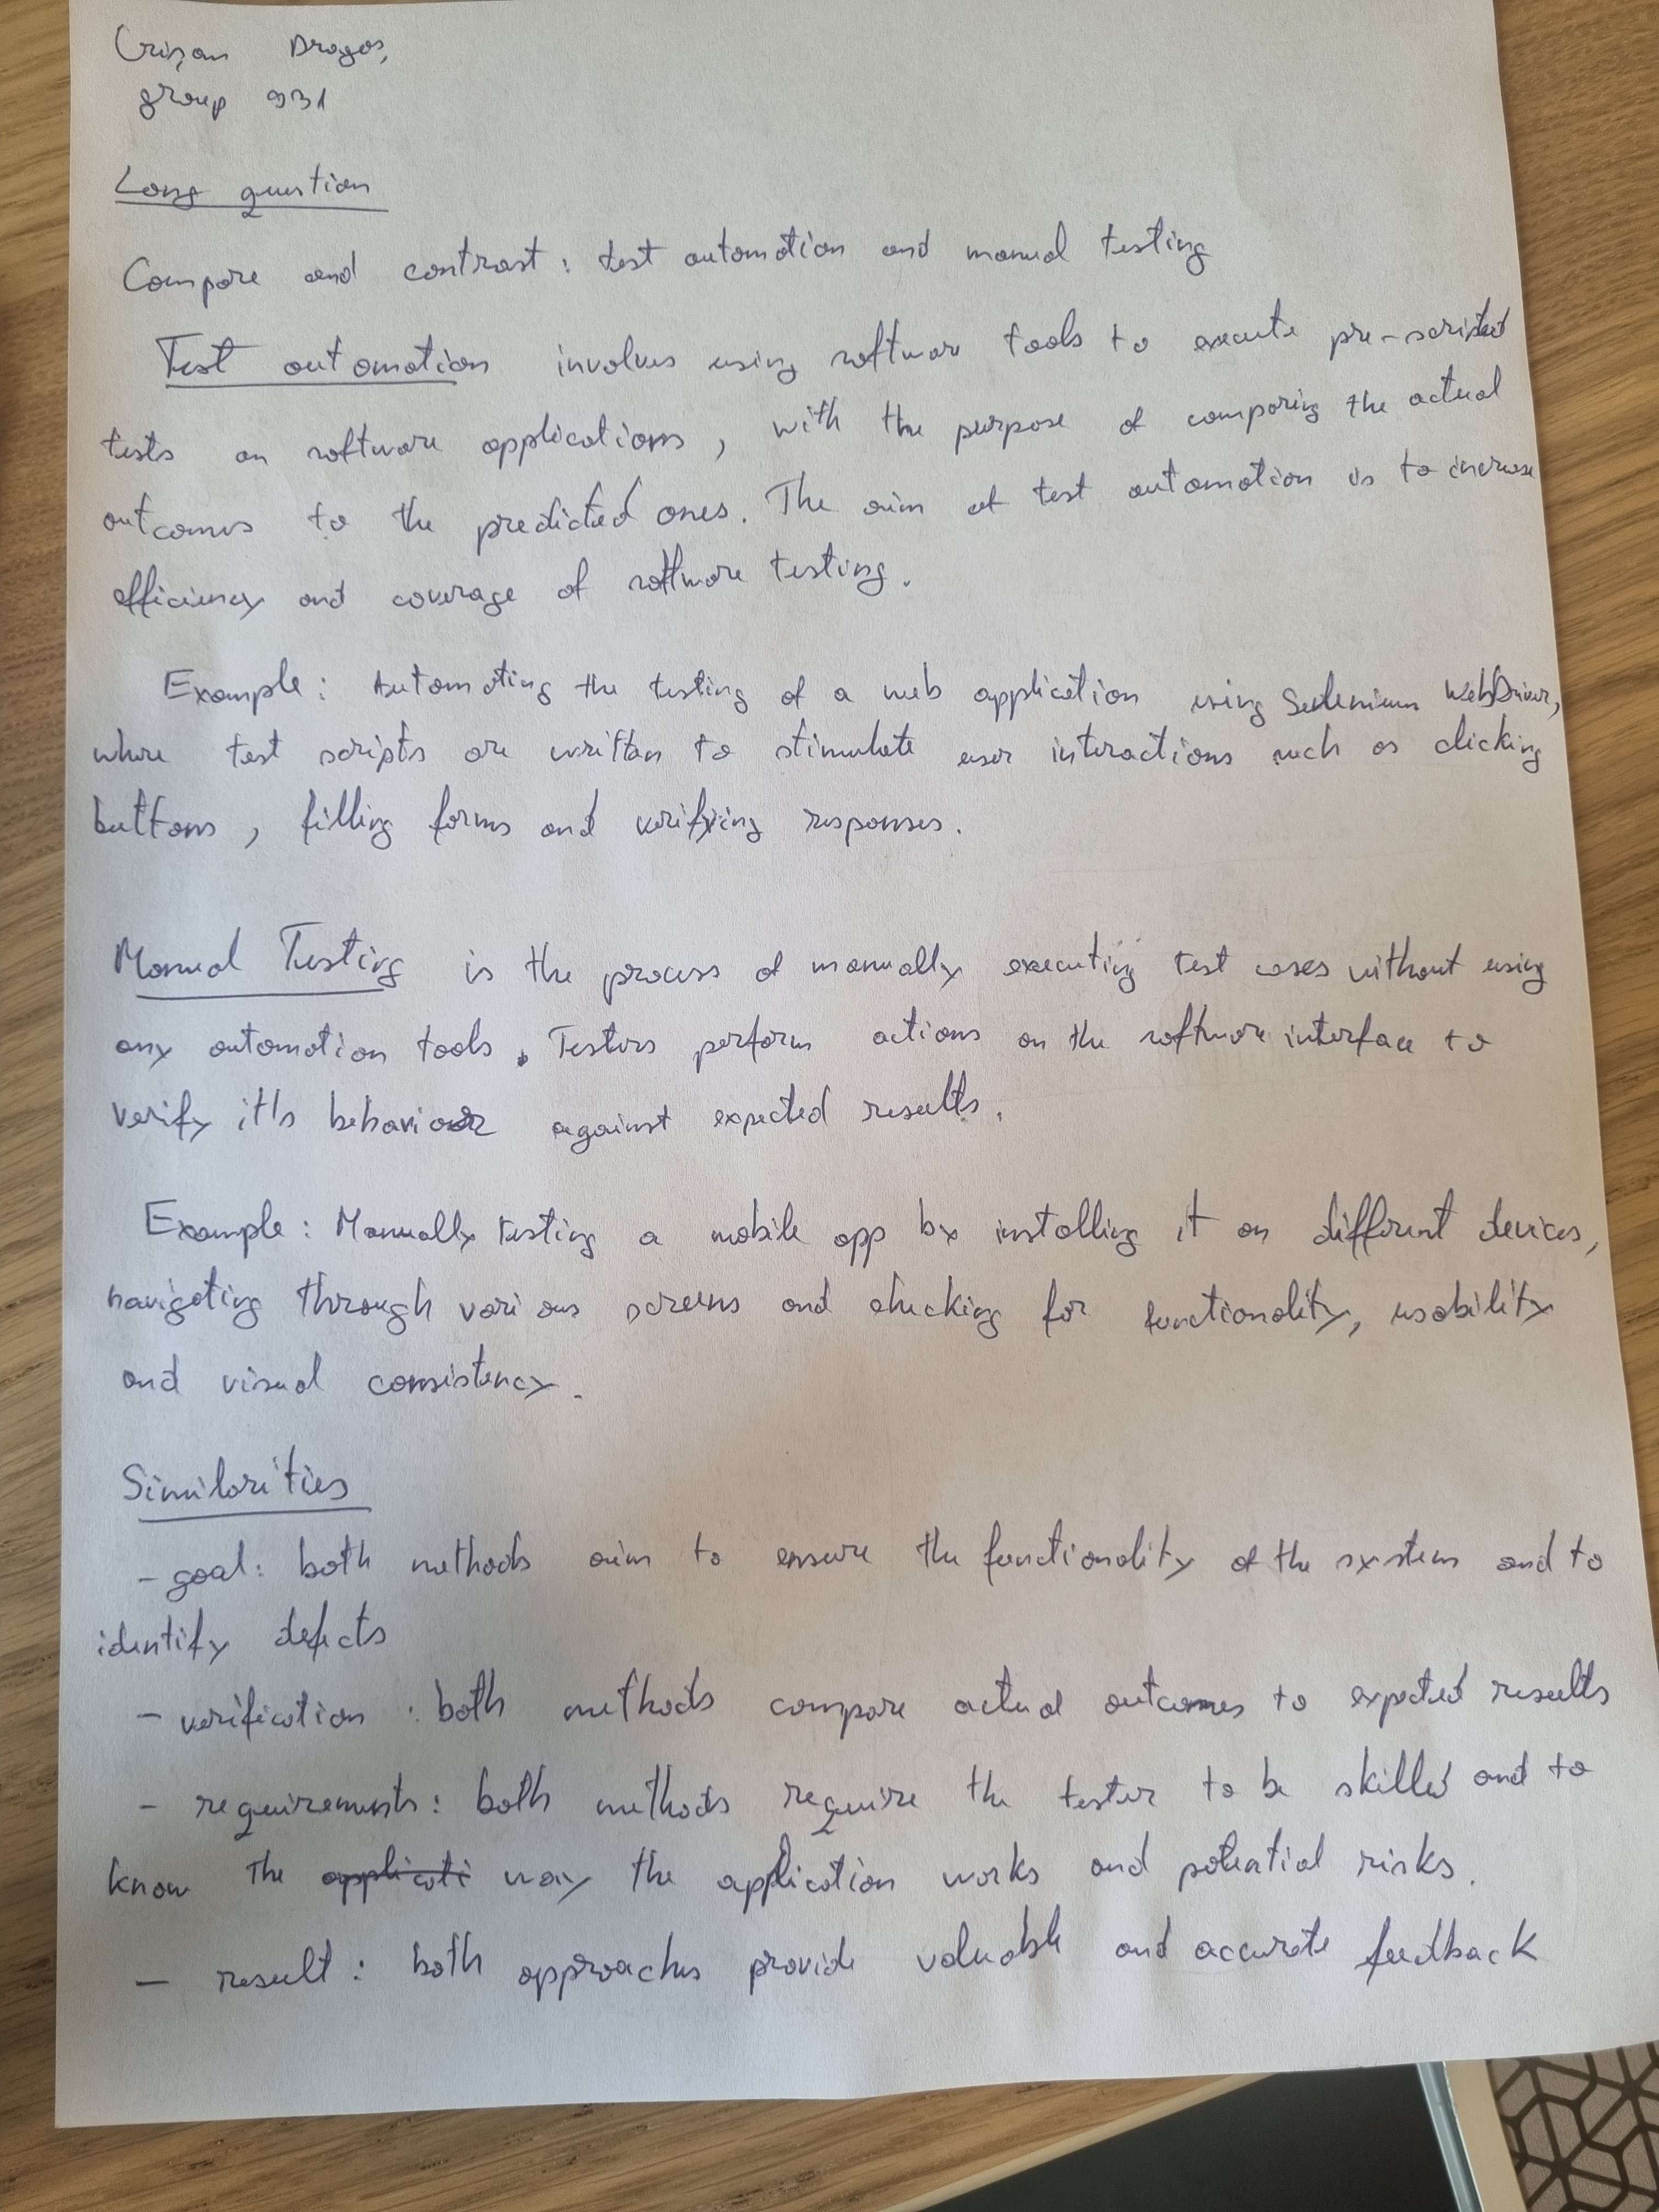 Crișan Dragos,
group 931
Long question
Compare and contrast: test automation and manual testing
Test automation involves using software tools to execute pre-scripted
tests on software applications, with the purpose of comparing the actual
outcomes to the predicted ones. The aim of test automation is to increase
efficiency and coverage of software testing.
Example: Automating the testing of a web application using Selenium WebDriver,
where test scripts are written to stimulate user interactions such as clicking
buttons, filling forms and verifying responses.
Manual Testing is the process of manually executing test cases without using
any automation tools. Testers perform actions on the software interface to
verify it's behaviour against expected results.
Example: Manually testing a mobile app by installing it on different devices,
navigating through various screens and checking for functionality, usability
and visual consistency.
Similarities
- goal: both methods aim to ensure the functionality of the system and to
identify defects
- verification: both methods compare actual outcomes to expected results
- requirements: both methods require the tester to be skilled and to
know the applicati way the application works and potential risks.
- result: both approaches provide valuable and accurate feedback